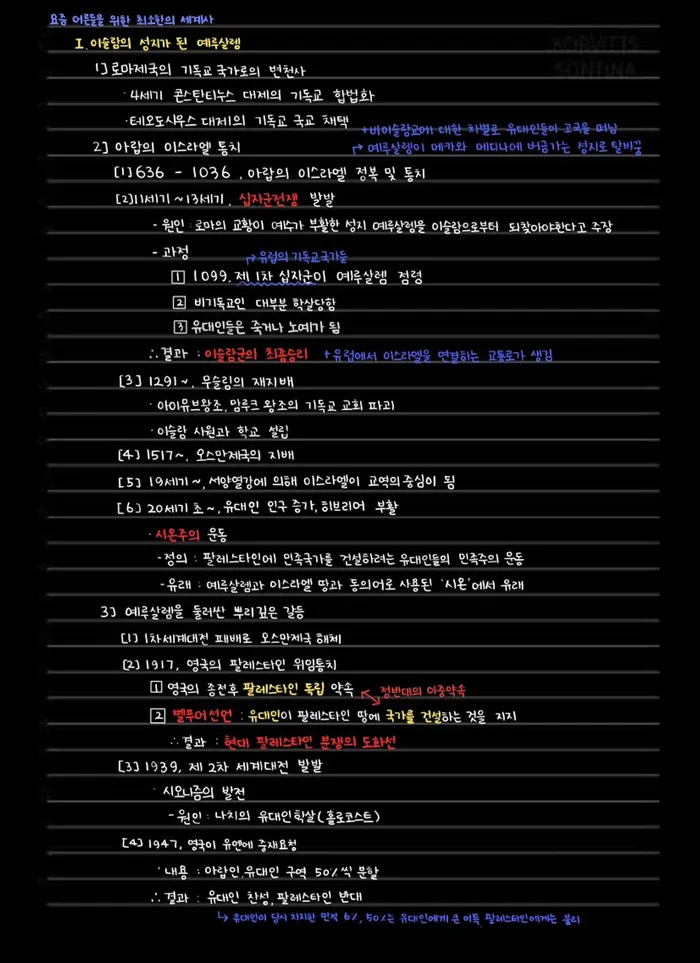 요즘 어른들을 위한 최소한의 세계사
I. 이슬람의 성지가 된 예루살렘
1] 로마제국의 기독교 국가로의 변천사
· 4세기 콘스탄티누스 대제의 기독교 합법화
· 테오도시우스 대제의 기독교 국교 채택
+ 비이슬람교에 대한 차별로 유대인들이 고국을 떠남
2] 아랍의 이스라엘 통치
↱ 예루살렘이 메카와 메디나에 버금가는 성지로 탈바꿈
[1] 636 - 1036, 아랍의 이스라엘 정복 및 통치
[2] 11세기~13세기, 십자군전쟁 발발
- 원인 : 로마의 교황이 예수가 부활한 성지 예루살렘을 이슬람으로부터 되찾아야한다고 주장
- 과정
↱ 유럽의 기독교국가들
1 1099, 제 1차 십자군이 예루살렘 점령
2 비기독교인 대부분 학살당함
3 유대인들은 죽거나 노예가 됨
∴ 결과 : 이슬람군의 최종승리 + 유럽에서 이스라엘을 연결하는 교통로가 생김
[3] 1291~, 무슬림의 재지배
· 아이유브왕조, 맘루크 왕조의 기독교 교회 파괴
· 이슬람 사원과 학교 설립
[4] 1517~, 오스만제국의 지배
[5] 19세기~, 서양열강에 의해 이스라엘이 교역의 중심이 됨
[6] 20세기 초~, 유대인 인구 증가, 히브리어 부활
· 시온주의 운동
- 정의 : 팔레스타인에 민족국가를 건설하려는 유대인들의 민족주의 운동
- 유래 : 예루살렘과 이스라엘 땅과 동의어로 사용된 '시온'에서 유래
3] 예루살렘을 둘러싼 뿌리깊은 갈등
[1] 1차세계대전 패배로 오스만제국 해체
[2] 1917, 영국의 팔레스타인 위임통치
1 영국의 종전후 팔레스타인 독립 약속 정반대의 이중약속
2 벨푸어선언 : 유대인이 팔레스타인 땅에 국가를 건설하는 것을 지지
∴ 결과 : 현대 팔레스타인 분쟁의 도화선
[3] 1939, 제 2차 세계대전 발발
· 시오니즘의 발전
- 원인 : 나치의 유대인학살(홀로코스트)
[4] 1947, 영국이 유엔에 중재요청
· 내용 : 아랍인, 유대인 구역 50%씩 분할
∴ 결과 : 유대인 찬성, 팔레스타인 반대
↳ 유대인이 당시 차지한 면적 6%, 50%는 유대인에게 큰 이득, 팔레스타인에게는 불리